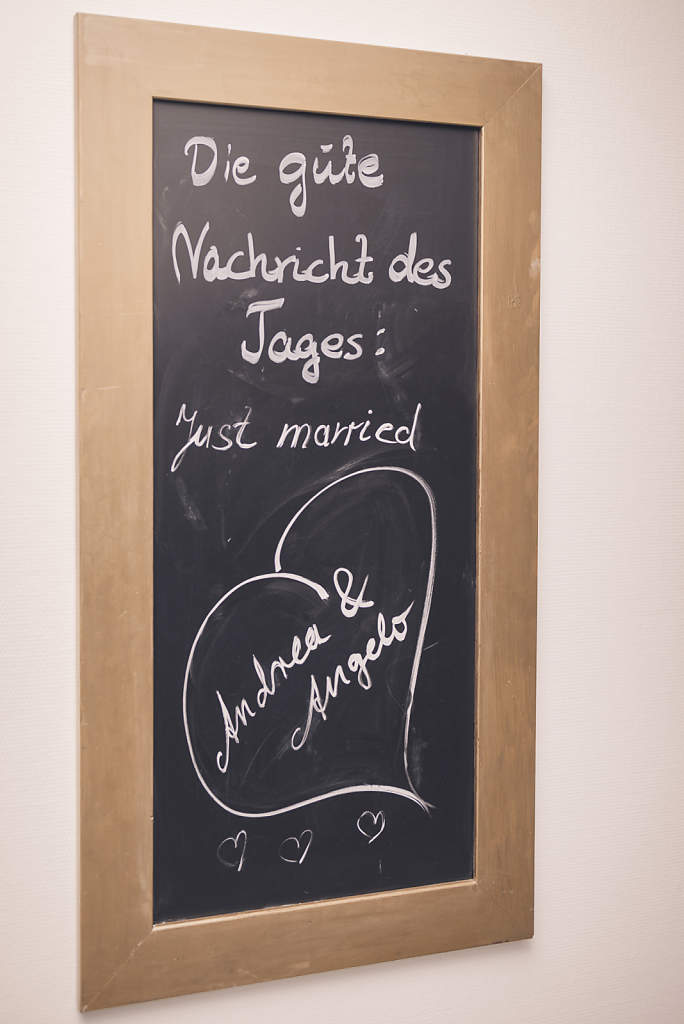 Die gute
Nachricht des
Tages:
Just married
Andrea &
Angelo